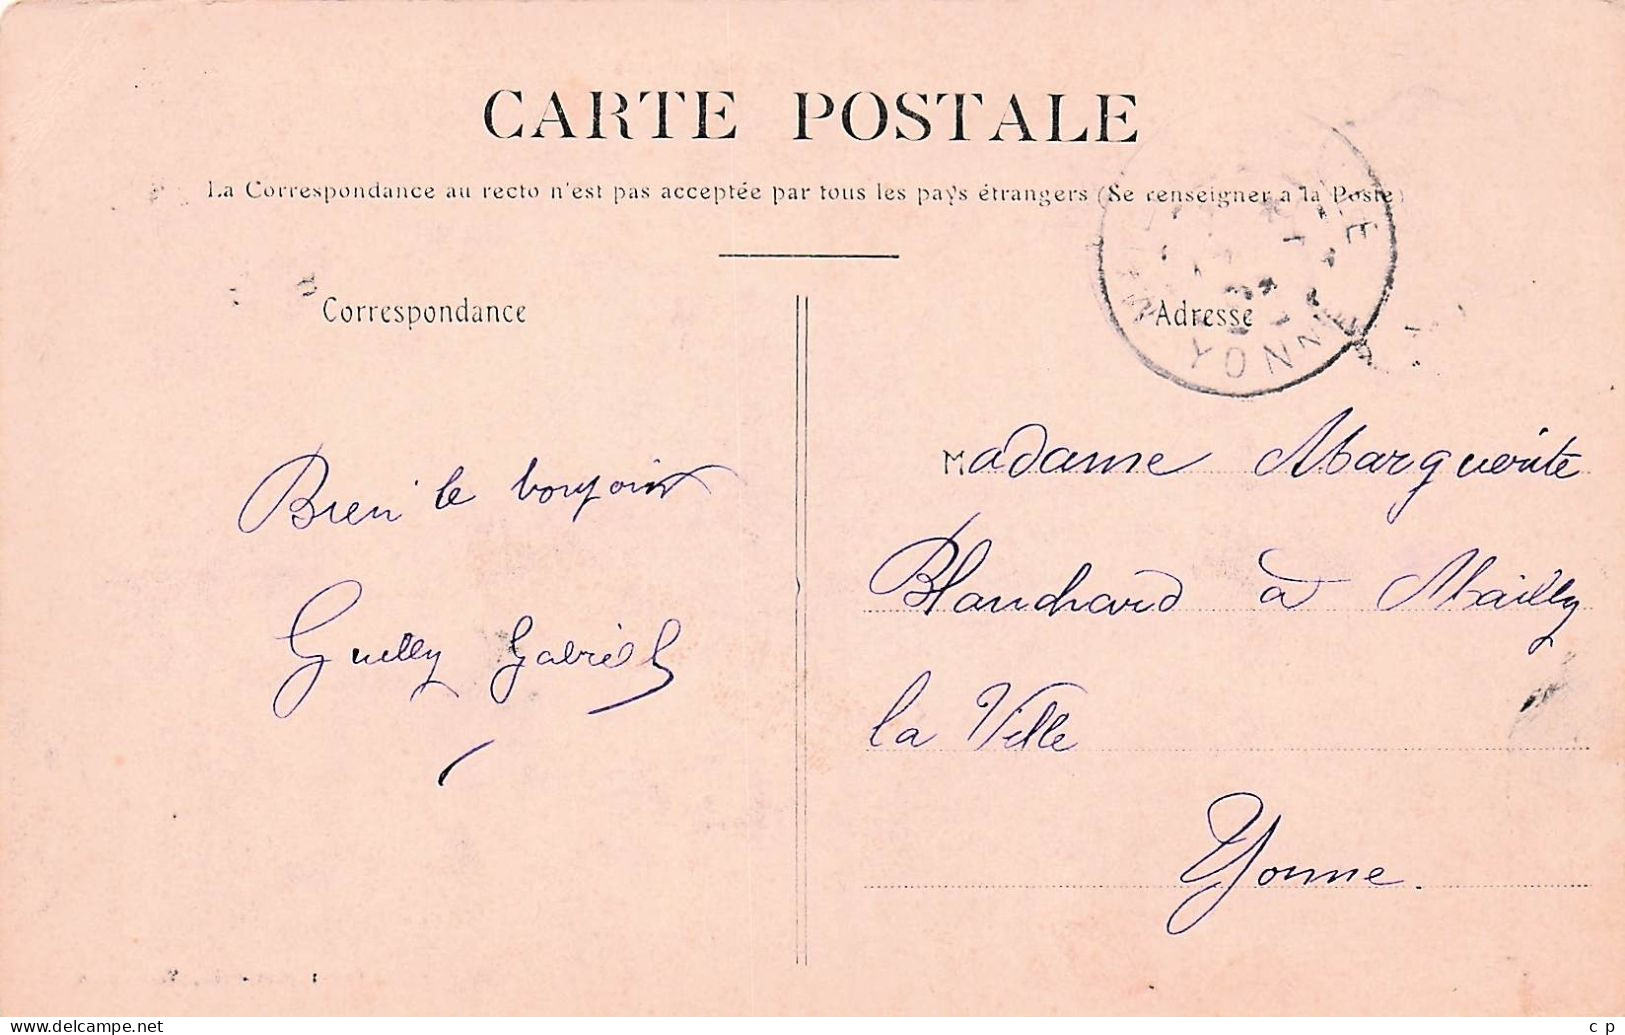 CARTE POSTALE
La Correspondance au recto n'est pas acceptée par tous les pays étrangers (Se renseigner à la Poste)
Correspondance
Adresse
YONNE
Bien le bonjour
Guelly Gabriel
Madame Marguerite
Blanchard à Mailly
la Ville
Yonne.
www.delcampe.net
c_p